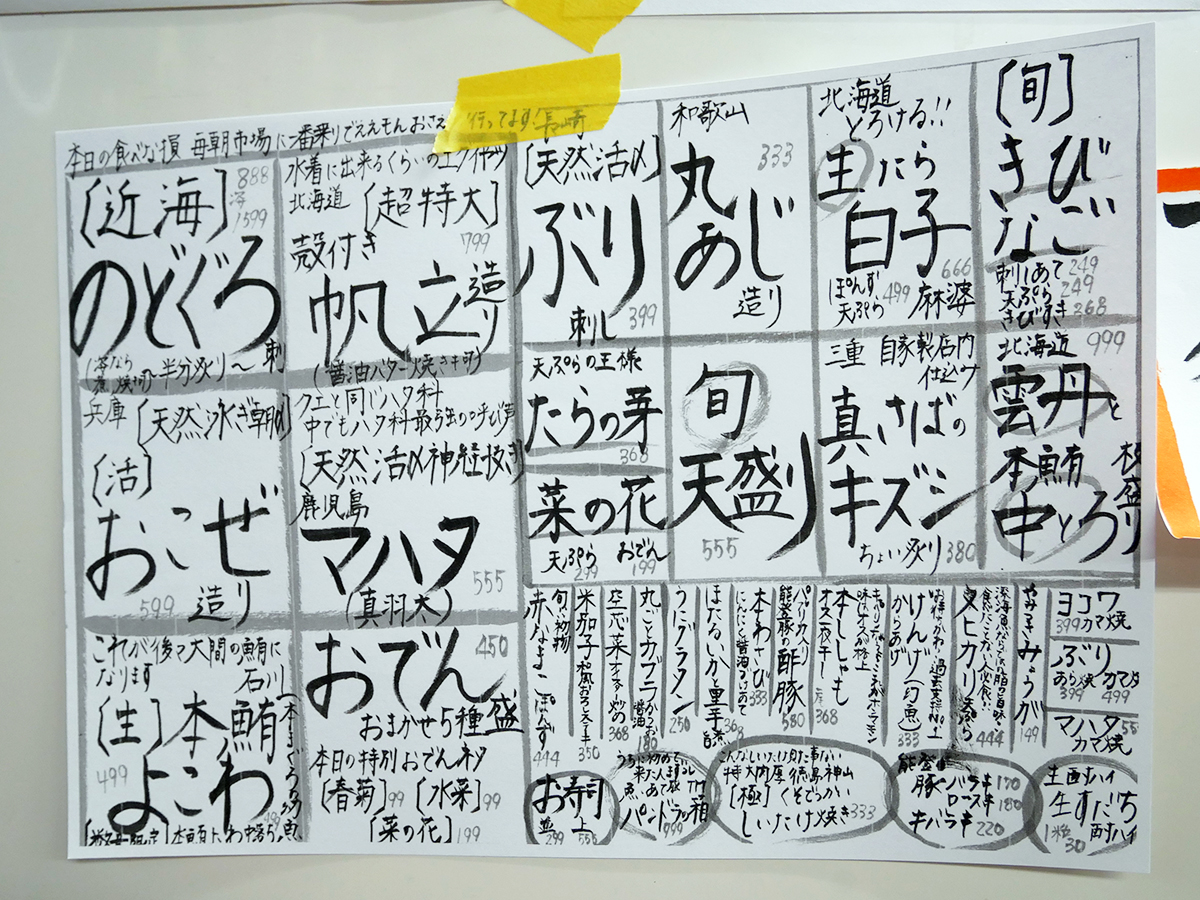 本日の食べな損 毎朝市場に一番乗りでええもんおさえ 行ってます!
〔近海〕
888
1599
のどぐろ
半分炙り〜刺
水着に出来るくらいの
北海道〔超特大〕
殻付き
799
帆立造り
(醤油バター焼き可)
長崎
〔天然活〆〕
ぶり
刺し 399
和歌山
333
丸あじ
造り
北海道
とろける!!
生たら
白子
666
ぽんず
天ぷら 499 麻婆
〔旬〕
きびなご
刺しあて 249
天ぷら 249
きびすき 268
兵庫〔天然泳ぎ朝〆〕
〔活〕
おこぜ
599 造り
クエと同じハタ科
中でもハタ科最強の呼び声
〔天然活〆神経抜き〕
鹿児島
マハタ
555
(真羽太)
天ぷらの王様
たらの芽
368
菜の花
天ぷら 299
おでん 199
旬
天盛り
555
三重 自家製店内
仕込み
真さばの
キズシ
ちょい炙り 380
北海道 999
雲丹と
本鮪
中とろ
桜盛り
これが後々大間の鮪に
なります 石川
〔生〕本鮪
499
よこわ
おでん
450
おまかせ5種盛
本日の特別おでんネタ
〔春菊〕99 〔水菜〕99
〔菜の花〕199
赤なまこぽんず
444
米茄子和風おろしステーキ
350
空芯菜オイスター炒め
368
丸ごとカブラかつお醤油
180
うにグラタン
250
ほたるいかと里芋旨煮
368
本わさび
にんにく醤油づけあて
333
能登豚の酢豚
580
本ししゃも
オス一夜干し
368
げんげ(幻魚)
からあげ
333
メヒカリ天ぷら
444
やみつきみょうが
149
ヨコワ
399 カマ焼
ぶり
あら焼 399
カマ焼 499
マハタ
カマ焼
お寿司
盛 299
上 555
パンドラの箱
999
こんなしいたけ見た事ない
特大肉厚 徳島神山
〔極〕くそでっかい
しいたけ焼き 333
能登
豚バラ串 170
ロース串 180
牛バラ串 220
生酎ハイ
生すだち
酎ハイ